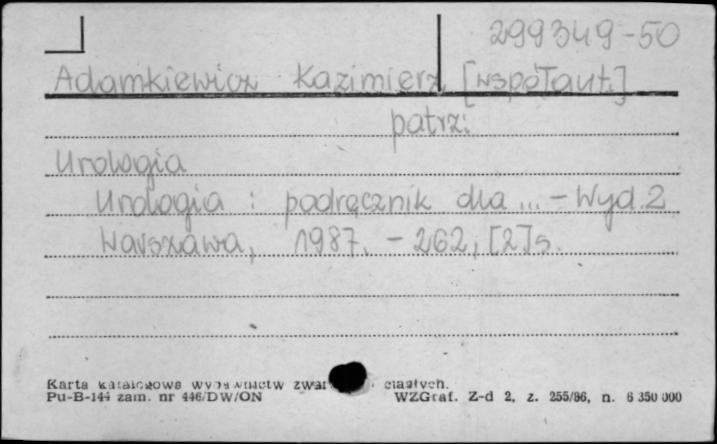 299349-50
Adamkiewicz Kazimierz [współaut.]
patrz:
Urologia
Urologia : podręcznik dla ... - Wyd. 2
Warszawa, 1987. - 262, [2] s.
Karta katalogowa wydawnictw zwar ciągłych.
Pu-B-144 zam. nr 446/DW/ON WZGraf. Z-d 2, z. 255/86, n. 6 350 000